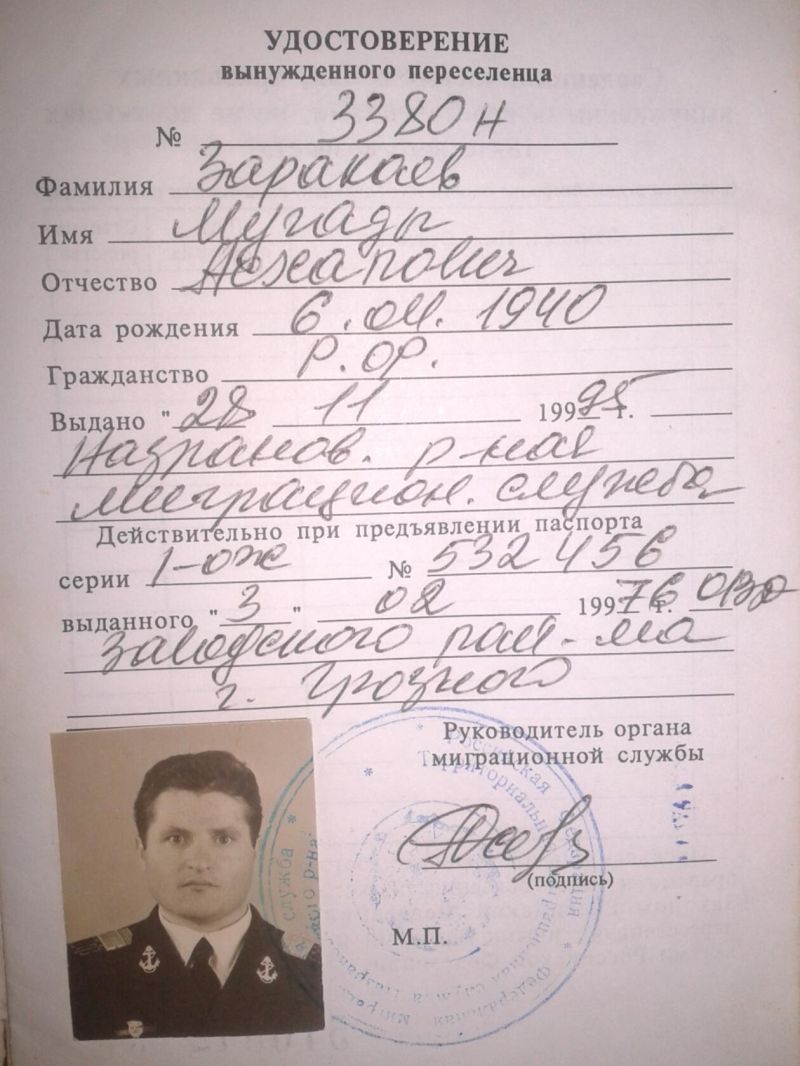 УДОСТОВЕРЕНИЕ
вынужденного переселенца
№ 3380 Н
Фамилия Заракаев
Имя Мугады
Отчество Асхапович
Дата рождения 6.04. 1940
Гражданство Р.Ф.
Выдано "28 11 1995 г.
Назранов. р-ная
миграцион. служба
Действительно при предъявлении паспорта
серии I-ОЖ № 532456
выданного "3" 02 1976 г. ОВД
Заводского рай-на
г. Грозного
Руководитель органа
миграционной службы
(подпись)
М.П.
Российская Федерация
Федеральная
служба